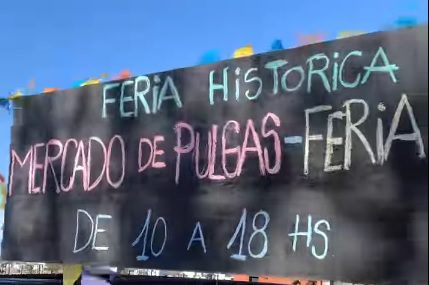 FERIA HISTORICA
MERCADO DE PULGAS-FERIA
DE 10 A 18 HS